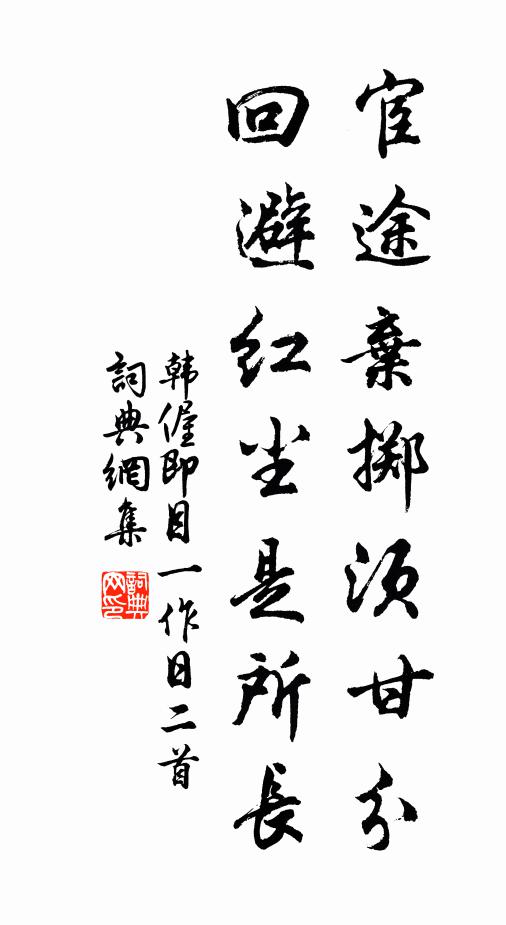 宦途棄擲須甘分
回避红尘是所長
韩偓即目一作日二首
詞典網集
詞典网印